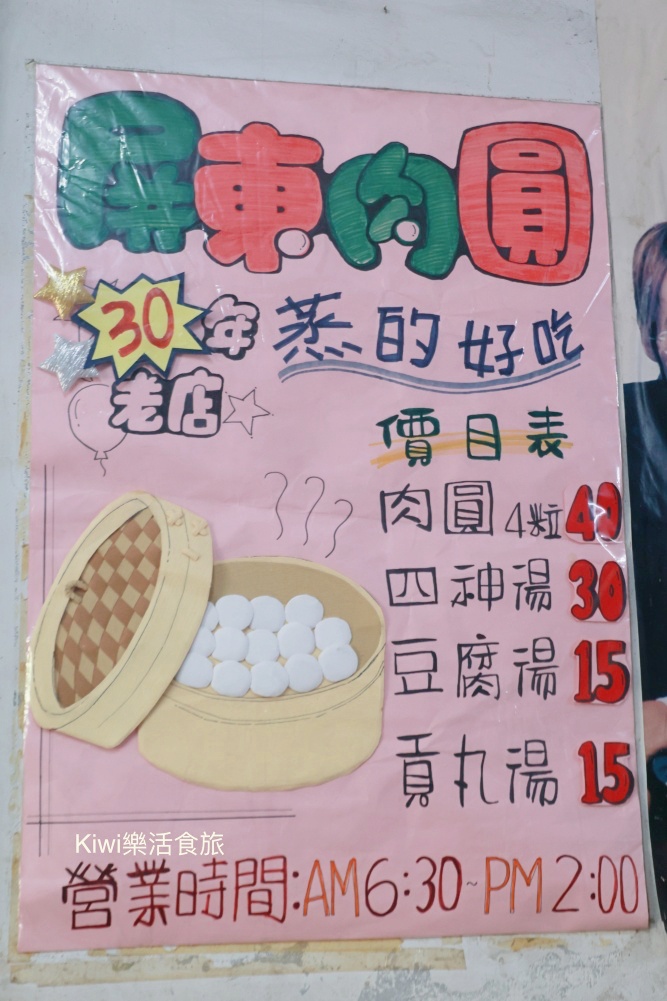 屏東肉圓
30年
老店
蒸的好吃
價目表
肉圓 4粒 40
四神湯 30
豆腐湯 15
貢丸湯 15
Kiwi樂活食旅
營業時間:AM6:30~PM2:00